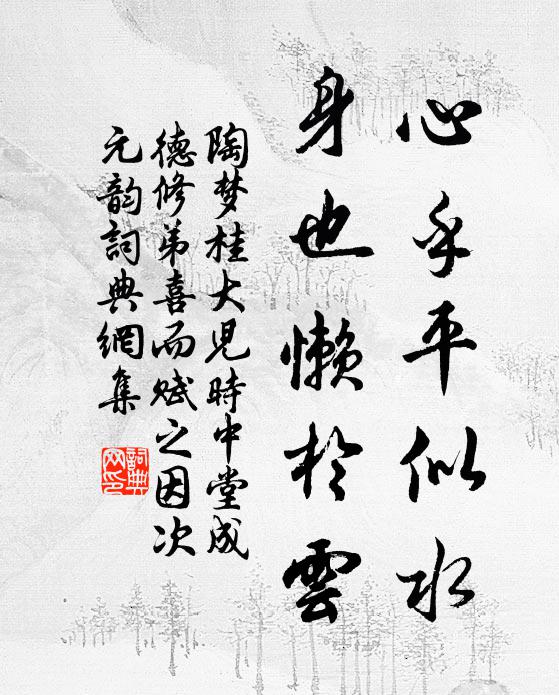 心乎平似水
身也懒於雲
陶梦桂大児時中堂成
德修弟喜而赋之因次
元韵詞典網集
詞典
网印